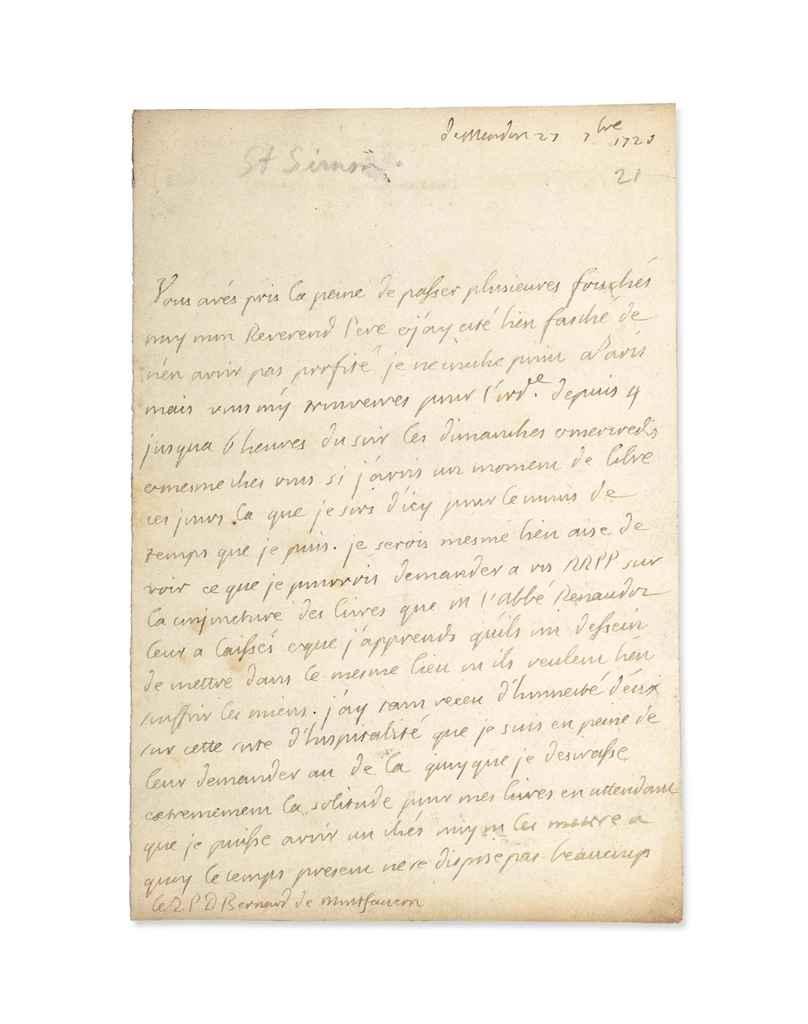 de Meudon 27 7bre 1720
St Simon.
21
Vous avés pris la peine de passer plusieures fois chés
moy mon Reverend Pere et j'ay esté bien fasché de
n'en avoir pas profité je ne couche point a Paris
mais vous m'y trouverres pour l'ordre. depuis 4
jusqua 6 heures du soir les dimanches et mercredis
et mesme chés vous si j'avois un moment de libre
ces jours la que je sors d'icy pour le moins de
temps que je puis. je serois mesme bien aise de
voir ce que je pourrois demander a vos RRPP sur
la conjoncture des livres que M l'Abbé Renaudot
leur a laissés et que j'apprends qu'ils ont dessein
de mettre dans le mesme lieu ou ils veulent bien
souffrir les miens. j'ay tant receu d'honnesteté d'eux
sur cette sorte d'hospitalité que je suis en peine de
leur demander au de la quoyque je desirasse
extremement la solitude pour mes livres en attendant
que je puisse avoir un chés moy ou les mettre a
quoy le temps present ne se dispose pas beaucoup
le R P D Bernard de Montfaucon